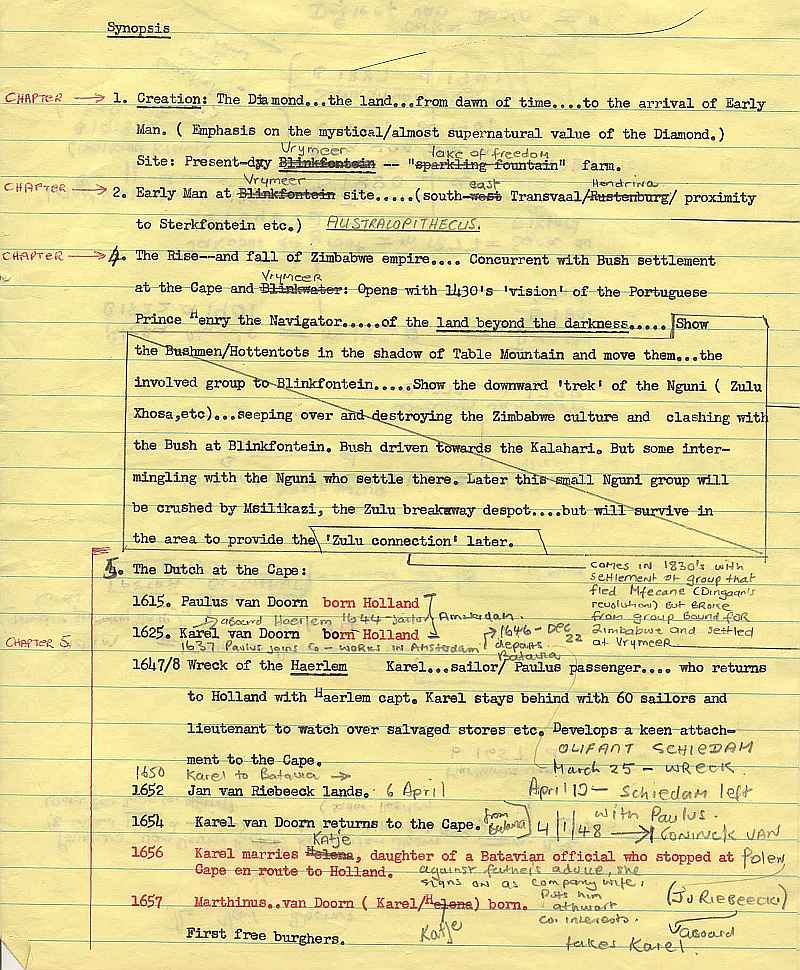 Synopsis
CHAPTER → 1. Creation: The Diamond...the land...from dawn of time....to the arrival of Early
Man. ( Emphasis on the mystical/almost supernatural value of the Diamond.)
Vrymeer lake of freedom
Site: Present-day Blinkfontein -- "sparkling fountain" farm.
Vrymeer east Hendrina
CHAPTER → 2. Early Man at Blinkfontein site.....(south-west Transvaal/Rustenburg/ proximity
to Sterkfontein etc.) AUSTRALOPITHECUS.
CHAPTER → 4. The Rise--and fall of Zimbabwe empire.... Concurrent with Bush settlement
VRYMEER
at the Cape and Blinkwater: Opens with 1430's 'vision' of the Portuguese
Prince Henry the Navigator.....of the land beyond the darkness..... Show
the Bushmen/Hottentots in the shadow of Table Mountain and move them...the
involved group to Blinkfontein.....Show the downward 'trek' of the Nguni ( Zulu
Xhosa,etc)...seeping over and destroying the Zimbabwe culture and clashing with
the Bush at Blinkfontein. Bush driven towards the Kalahari. But some inter-
mingling with the Nguni who settle there. Later this small Nguni group will
be crushed by Msilikazi, the Zulu breakaway despot....but will survive in
the area to provide the 'Zulu connection' later.
comes in 1830's with
settlement of group that
fled Mfecane (Dingaan's
revolution) but broke
from group bound for
Zimbabwe and settled
at Vrymeer
5. The Dutch at the Cape:
1615. Paulus van Doorn born Holland
→ aboard Haerlem 1644 - sailor Amsterdam.
1625. Karel van Doorn born Holland
1646 - DEC 22
departs Batavia
CHAPTER 5.
1637 Paulus joins Co - works in Amsterdam
1647/8 Wreck of the Haerlem Karel...sailor/ Paulus passenger.... who returns
to Holland with Haerlem capt. Karel stays behind with 60 sailors and
lieutenant to watch over salvaged stores etc. Develops a keen attach-
ment to the Cape.
OLIFANT SCHIEDAM
March 25 - WRECK
1650 Karel to Batavia →
1652 Jan van Riebeeck lands. 6 April
April 10 - Schiedam left
with Paulus.
1654 Karel van Doorn returns to the Cape. from Batavia
4/1/48 → CONINCK VAN
Polen
Katje
1656 Karel marries Helena, daughter of a Batavian official who stopped at
Cape en route to Holland. against father's advice, she
signs on as company wife.
Puts him
athwart
co. interests.
1657 Marthinus..van Doorn ( Karel/Helena) born.
Katje
(JV RIEBEECK)
aboard
takes Karel
First free burghers.